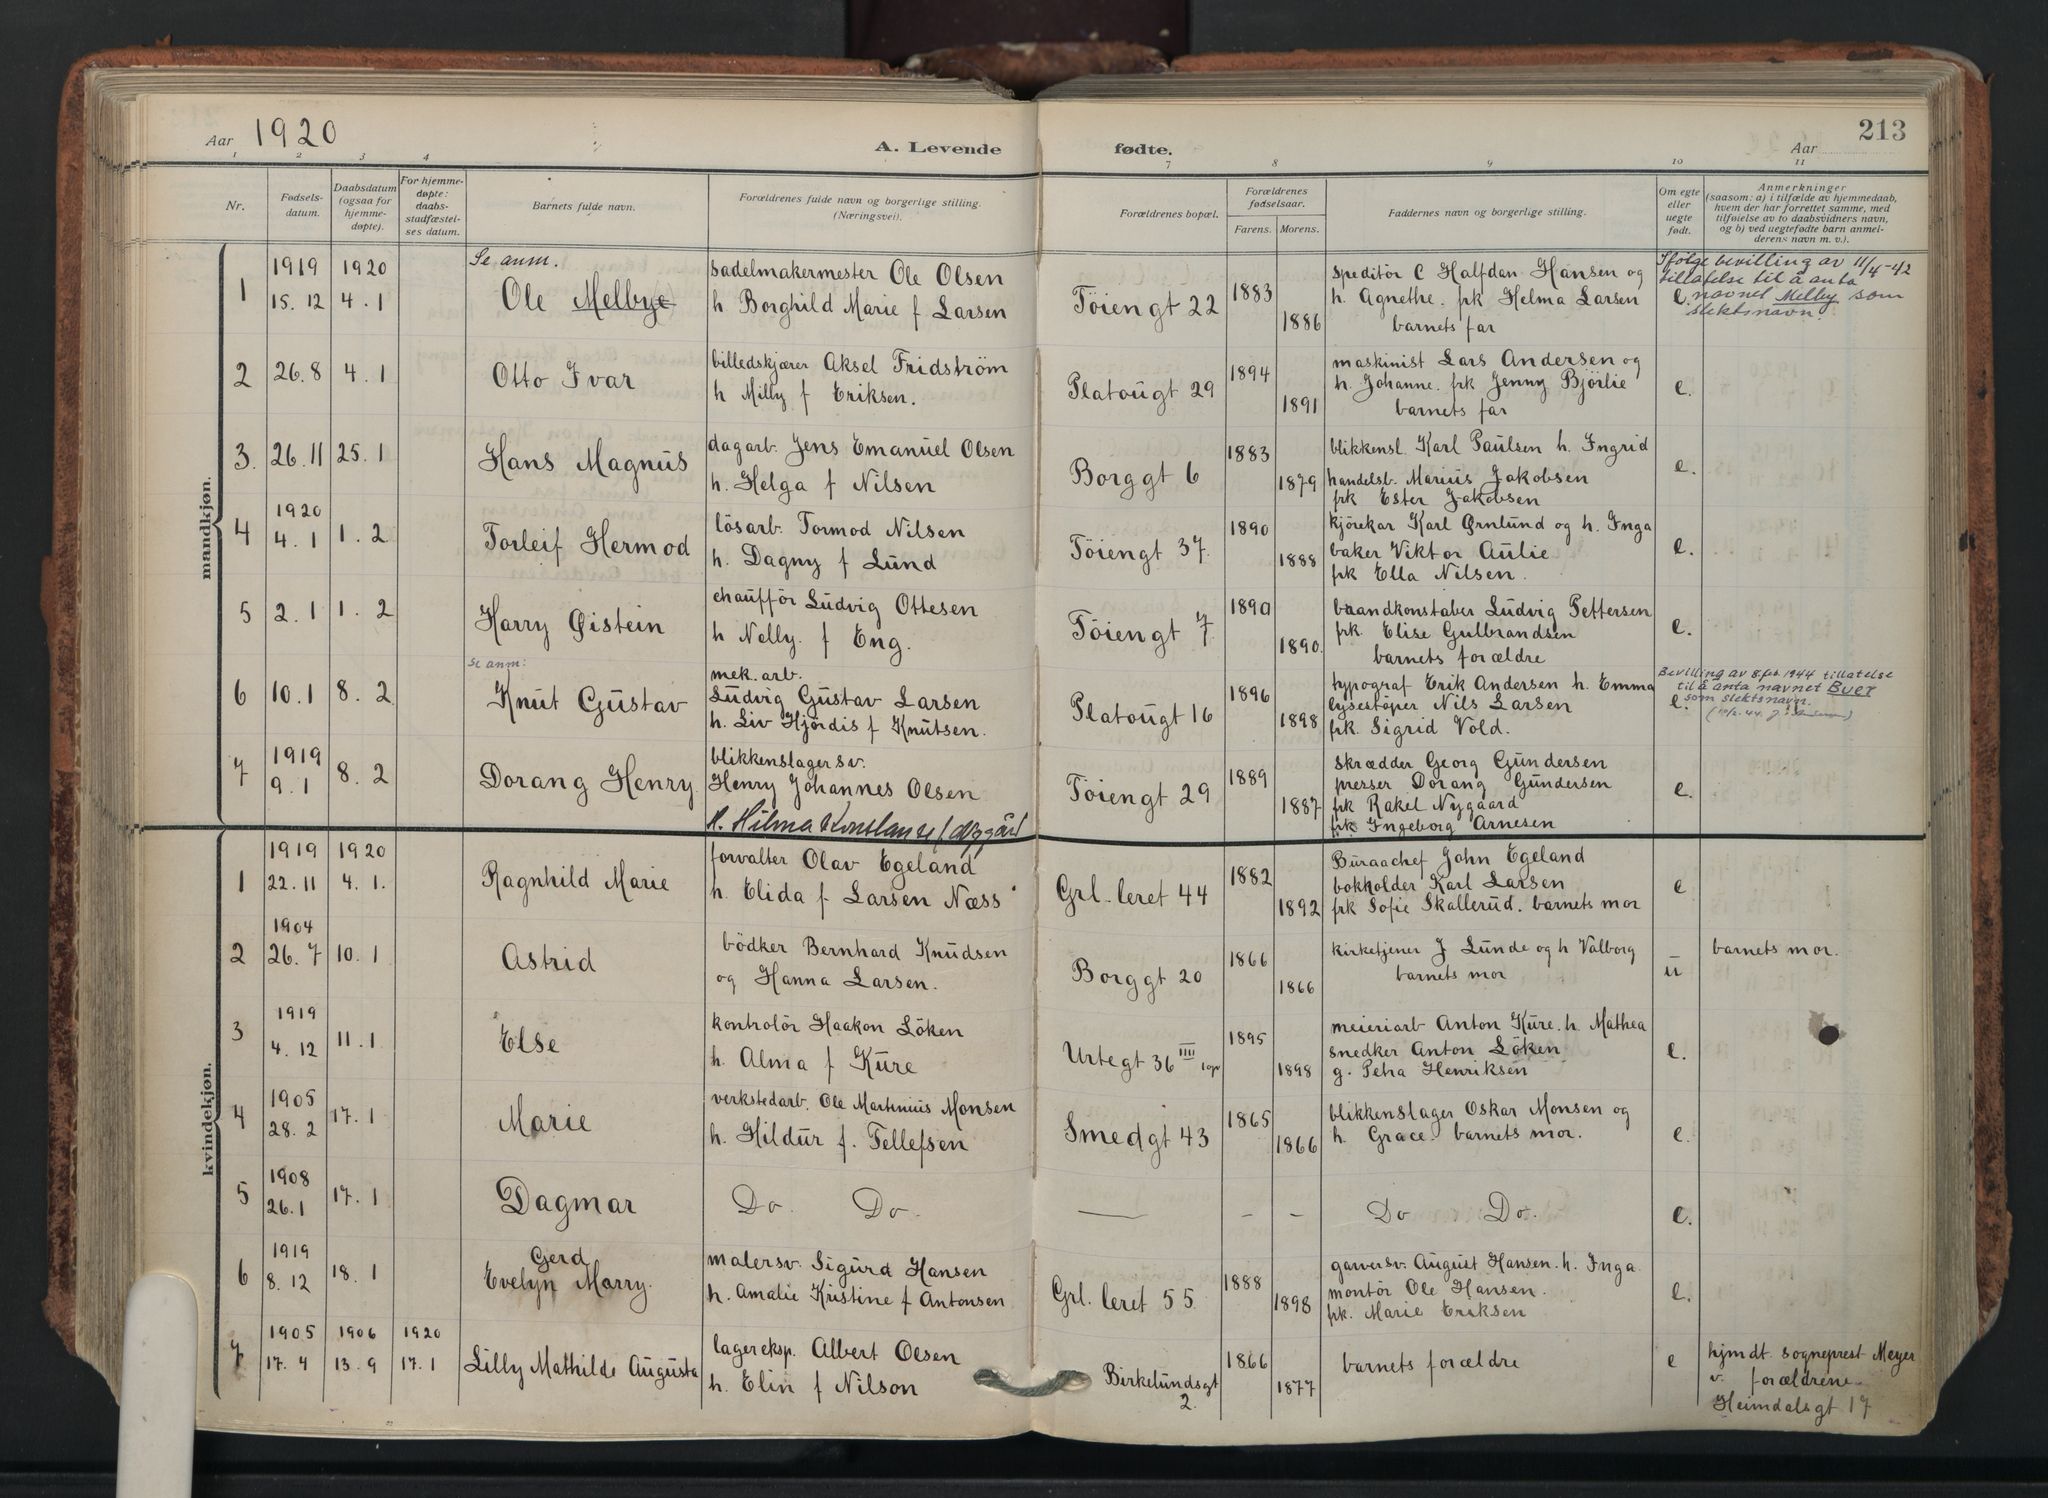 213
Aar 1920
A. Levende fødte.
Aar
1 2 3 4 7 8 9 10 11
Nr.
Fødsels-
datum.
Daabsdatum
(ogsaa for
hjemme-
døpte).
For hjemme-
døpte:
daabs-
stadfæstel-
ses datum.
Barnets fulde navn.
Forældrenes fulde navn og borgerlige stilling.
(Næringsvei).
Forældrenes bopæl.
Forældrenes
fødselsaar.
Farens. Morens.
Faddernes navn og borgerlige stilling.
Om egte
eller
uegte
født.
Anmerkninger
(saasom: a) i tilfælde av hjemmedaab,
hvem der har forrettet samme, med
tilføielse av to daabsvidners navn,
og b) ved uegtefødte barn anmel-
derens navn m. v.).
mandkjøn.
Se anm.
1 1919 1920 sadelmakermester Ole Olsen 1883 speditör C Halfdan Hansen og
15. 12 4. 1 Ole Melbye h Borghild Marie f Larsen Töiengt 22 1886 h. Agnethe. frk Helma Larsen e.
barnets far
Ifølge bevilling av 11/4-42
tillatelse til å anta
navnet Melby som
slektsnavn.
2 26. 8 4. 1 Otto Ivar billedskjærer Aksel Fridström 1894 maskinist Lars Andersen og
h Milly f Eriksen. Platougt 29 1891 h. Johanne. frk Jenny Björlie e.
barnets far
3. 26. 11 25. 1 Hans Magnus dagarb. Jens Emanuel Olsen 1883 blikkensl. Karl Paulsen h. Ingrid
h. Helga f Nilsen Borggt 6 1879 handelsb. Marius Jakobsen e.
frk Ester Jakobsen
4 1920 lösarb. Tormod Nilsen 1890 kjörekar Karl Ørnlund og h. Inga
4. 1 1. 2 Torleif Hermod h. Dagny f Lund Töiengt 37. 1888 baker Viktor Aulie e.
frk Ella Nilsen.
5 2. 1 1. 2 Harry Øistein chaufför Ludvig Ottesen 1890 brandkonstaber Ludvig Pettersen
h Nelly. f Eng. Töiengt 7 1890. frk. Elise Gulbrandsen e.
barnets forældre
se anm:
6 10. 1 8. 2 Knut Gustav mek. arb. 1896 typograf Erik Andersen h. Emma
Ludvig Gustav Larsen Platougt 16 1898 lysestöper Nils Larsen e.
h. Liv Hjördis f Knutsen. frk. Sigrid Vold.
Bevilling av 8. feb. 1944 tillatelse
til å anta navnet Buer
som slektsnavn.
7 1919 blikkenslagersv. 1889 skrædder Georg Gundersen
9. 1 8. 2 Dorang Henry Henry Johannes Olsen Töiengt 29 1887 presser Dorang Gundersen e.
h. Hilma Konstanse f Nygård frk Rakel Nygaard
frk Ingeborg Arnesen
kvindekjøn.
1 1919 1920 forvalter Olav Egeland 1882 Buraachef John Egeland
22. 11 4. 1. Ragnhild Marie h. Elida f Larsen Næss Grl. leret 44 1892 bokholder Karl Larsen e
frk Sofie Skallerud. barnets mor
2 1904 bödker Bernhard Knudsen 1866 kirketjener J Lunde og h Valborg barnets mor.
26. 7 10. 1 Astrid og Hanna Larsen. Borggt 20 1866 barnets mor u
3 1919 kontrolör Haakon Löken 1895 meieriarb Anton Kure. h. Mathea
4. 12 11. 1 Else h. Alma f Kure Urtegt 36 IIII 1898 snedker Anton Löken e.
g. Petra Henriksen
4 1905 verkstedarb. Ole Martinius Monsen 1865 blikkenslager Oskar Monsen og
28. 2 17. 1 Marie h. Hildur f. Tellefsen Smedgt 43 1866 h. Grace. barnets mor. e.
5 1908
26. 1 17. 1 Dagmar Do. Do. — – – Do Do. e.
6 1919 Gerd malersv. Sigurd Hansen 1888 garversv. August Hansen. h. Inga
8. 12 18. 1 Evelyn Marry. h. Amalie Kristine f Antonsen Grl. leret 55 1898 montör Ole Hansen. e.
frk. Marie Eriksen
7 1905 1906 1920 lagereksp. Albert Olsen 1866 barnets forældre e hjmdt. sogneprest Meyer
17. 4 13. 9 17. 1 Lilly Mathilde Augusta h. Elin f Nilson Birkelundsgt 1877 v. forældrene.
2. Heimdalsgt 17